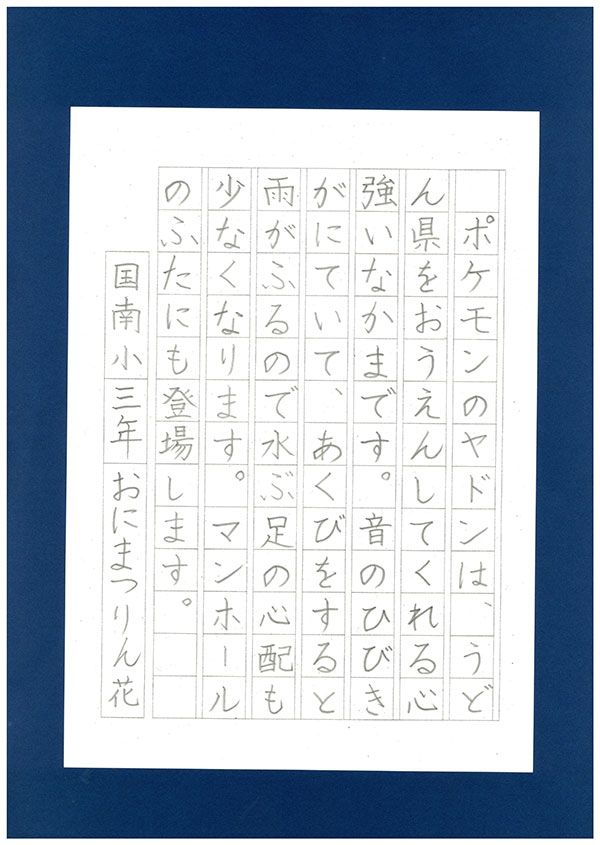 ポケモンのヤドンは、うど
ん県をおうえんしてくれる心
強いなかまです。音のひびき
がにていて、あくびをすると
雨がふるので水ぶ足の心配も
少なくなります。マンホール
のふたにも登場します。
国南小三年おにまつりん花